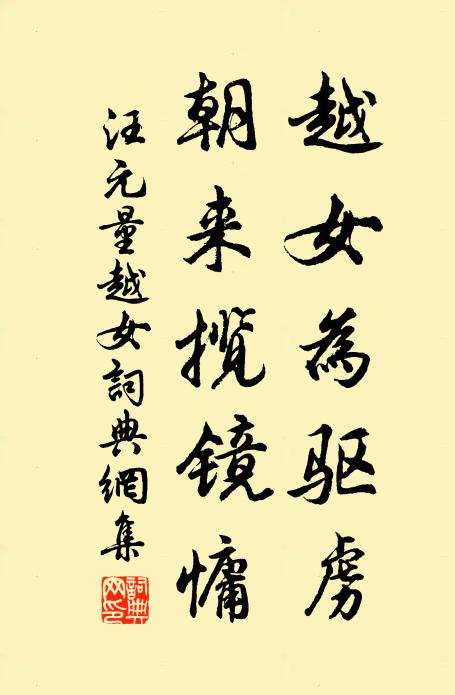 越女為驱虏
朝来揽镜慵
汪元量越女詞典網集
詞典网印